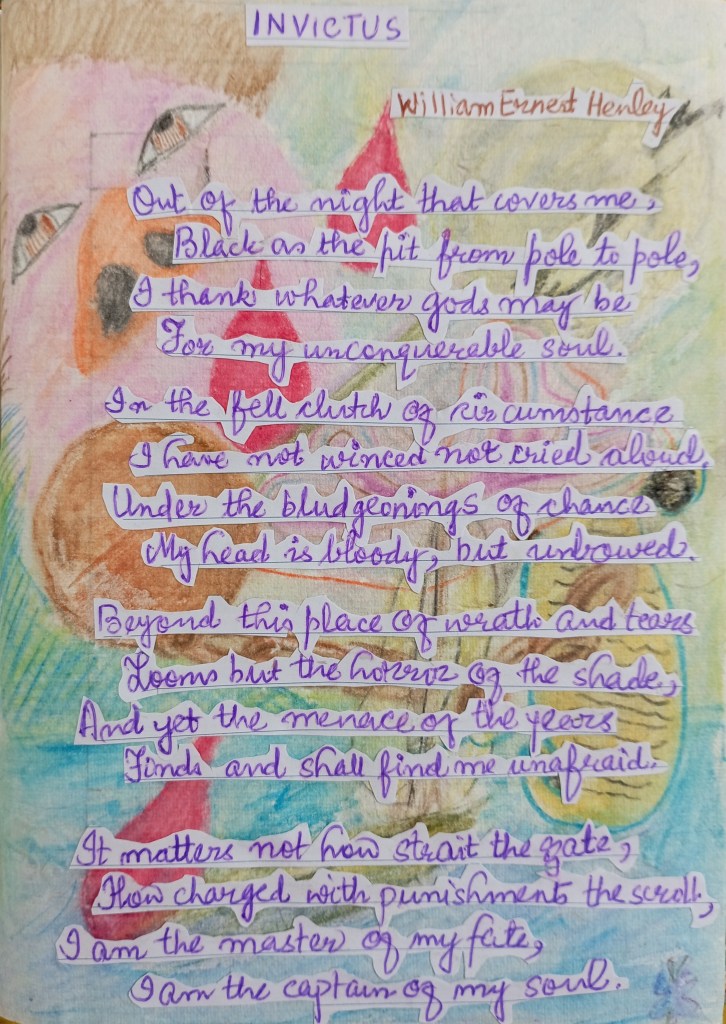 INVICTUS
William Ernest Henley
Out of the night that covers me,
Black as the pit from pole to pole,
I thank whatever gods may be
For my unconquerable soul.
In the fell clutch of circumstance
I have not winced not cried aloud.
Under the bludgeonings of chance
My head is bloody, but unbowed.
Beyond this place of wrath and tears
Looms but the horror of the shade,
And yet the menace of the years
Finds and shall find me unafraid.
It matters not how strait the gate,
How charged with punishments the scroll,
I am the master of my fate,
I am the captain of my soul.